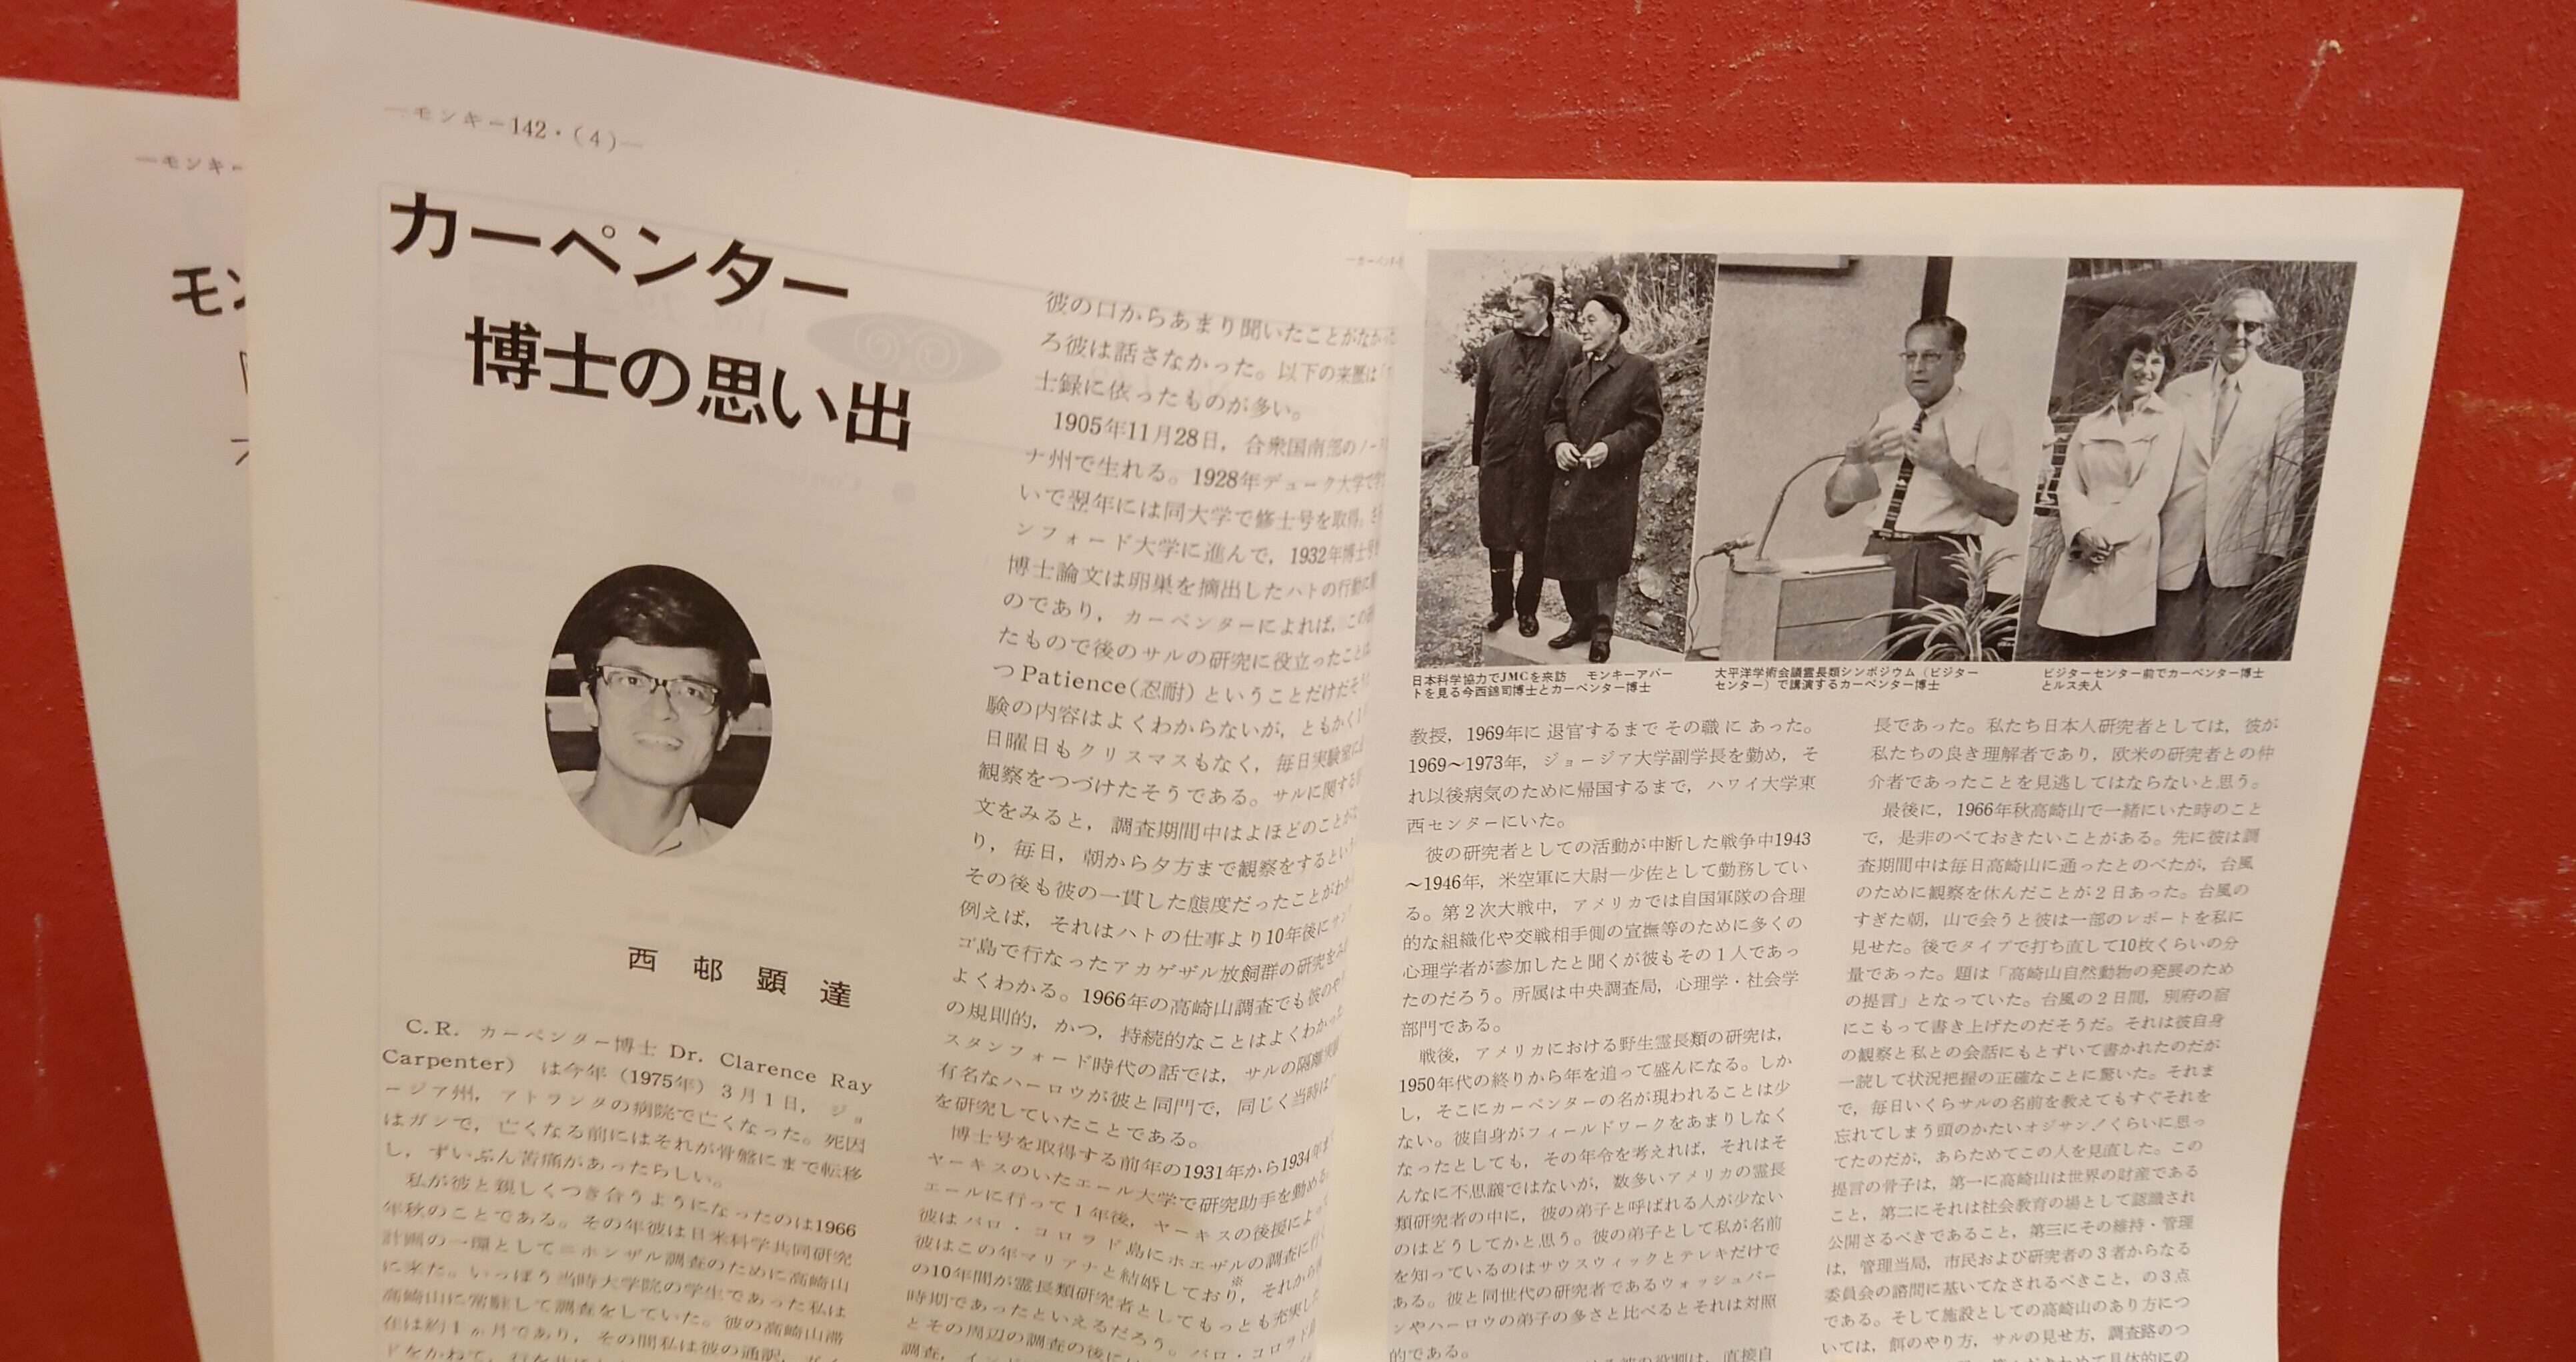 —モンキー142・(4)—
—モンキー
モン
カーペンター
博士の思い出
西邨顕達
C.R. カーペンター博士 Dr. Clarence Ray
Carpenter) は今年(1975年)3月1日, ジョ
ージア州, アトランタの病院で亡くなった。死因
はガンで, 亡くなる前にはそれが骨盤にまで転移
し, ずいぶん苦痛があったらしい。
私が彼と親しくつき合うようになったのは1966
年秋のことである。その年彼は日米科学共同研究
計画の一環としてニホンザル調査のために高崎山
に来た。いっぽう当時大学院の学生であった私は
高崎山に常駐して調査をしていた。彼の高崎山滞
在は約1ヵ月であり, その間私は彼の通訳, ガイ
ドをかねて,
彼の口からあまり聞いたことがなかった
ろ彼は話さなかった。以下の来歴は
士録に依ったものが多い。
1905年11月28日, 合衆国南部のノー
ナ州で生れる。1928年デューク大学で
いで翌年には同大学で修士号を取得。
ンフォード大学に進んで, 1932年博士号
博士論文は卵巣を摘出したハトの行動に
のであり, カーペンターによれば, この
たもので後のサルの研究に役立ったことは
つPatience(忍耐)ということだけだそう
験の内容はよくわからないが, ともかく
日曜日もクリスマスもなく, 毎日実験室に
観察をつづけたそうである。サルに関する
文をみると, 調査期間中はよほどのことが
り, 毎日, 朝から夕方まで観察をするという
その後も彼の一貫した態度だったことがわか
例えば, それはハトの仕事より10年後にサン
ゴ島で行なったアカゲザル放飼群の研究をみ
よくわかる。1966年の高崎山調査でも彼のや
の規則的, かつ, 持続的なことはよくわかった
スタンフォード時代の話では, サルの隔離実験
有名なハーロウが彼と同門で, 同じく当時は
を研究していたことである。
博士号を取得する前年の1931年から1934年
ヤーキスのいたエール大学で研究助手を勤める。
エールに行って1年後, ヤーキスの後援によっ
彼はバロ・コロラド島にホエザルの調査に行
彼はこの年マリアナと結婚しており※, それから
の10年間が霊長類研究者としてもっとも充実した
時期であったといえるだろう。バロ・コロラド島
とその周辺の調査の後には
調査,
日本科学協力でJMCを来訪 モンキーアパー
トを見る今西錦司博士とカーペンター博士
太平洋学術会議霊長類シンポジウム(ビジター
センター)で講演するカーペンター博士
ビジターセンター前でカーペンター博士
とルス夫人
教授, 1969年に退官するまでその職にあった。
1969〜1973年, ジョージア大学副学長を勤め, そ
れ以後病気のために帰国するまで, ハワイ大学東
西センターにいた。
彼の研究者としての活動が中断した戦争中1943
〜1946年, 米空軍に大尉—少佐として勤務してい
る。第2次大戦中, アメリカでは自国軍隊の合理
的な組織化や交戦相手側の宣撫等のために多くの
心理学者が参加したと聞くが彼もその1人であっ
たのだろう。所属は中央調査局, 心理学・社会学
部門である。
戦後, アメリカにおける野生霊長類の研究は,
1950年代の終りから年を追って盛んになる。しか
し, そこにカーペンターの名が現われることは少
ない。彼自身がフィールドワークをあまりしなく
なったとしても, その年令を考えれば, それはそ
んなに不思議ではないが, 数多いアメリカの霊長
類研究者の中に, 彼の弟子と呼ばれる人が少ない
のはどうしてかと思う。彼の弟子として私が名前
を知っているのはサウスウィックとテレキだけで
ある。彼と同世代の研究者であるウォッシュバー
ンやハーロウの弟子の多さと比べるとそれは対照
的である。
る彼の役割は, 直接自
長であった。私たち日本人研究者としては, 彼が
私たちの良き理解者であり, 欧米の研究者との仲
介者であったことを見逃してはならないと思う。
最後に, 1966年秋高崎山で一緒にいた時のこと
で, 是非のべておきたいことがある。先に彼は調
査期間中は毎日高崎山に通ったとのべたが, 台風
のために観察を休んだことが2日あった。台風の
すぎた朝, 山で会うと彼は一部のレポートを私に
見せた。後でタイプで打ち直して10枚くらいの分
量であった。題は「高崎山自然動物の発展のため
の提言」となっていた。台風の2日間, 別府の宿
にこもって書き上げたのだそうだ。それは彼自身
の観察と私との会話にもとずいて書かれたのだが
一読して状況把握の正確なことに驚いた。それま
で, 毎日いくらサルの名前を教えてもすぐそれを
忘れてしまう頭のかたいオジサン!くらいに思っ
てたのだが, あらためてこの人を見直した。この
提言の骨子は, 第一に高崎山は世界の財産である
こと, 第二にそれは社会教育の場として認識され
公開さるべきであること, 第三にその維持・管理
は, 管理当局, 市民および研究者の3者からなる
委員会の諮問に基いてなされるべきこと, の3点
である。そして施設としての高崎山のあり方につ
いては, 餌のやり方, サルの見せ方, 調査路のつ